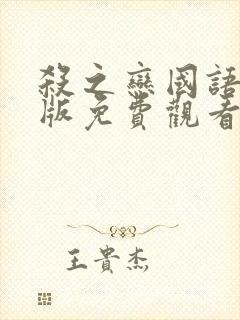 殺之戀國語
版免費觀看
王貴杰